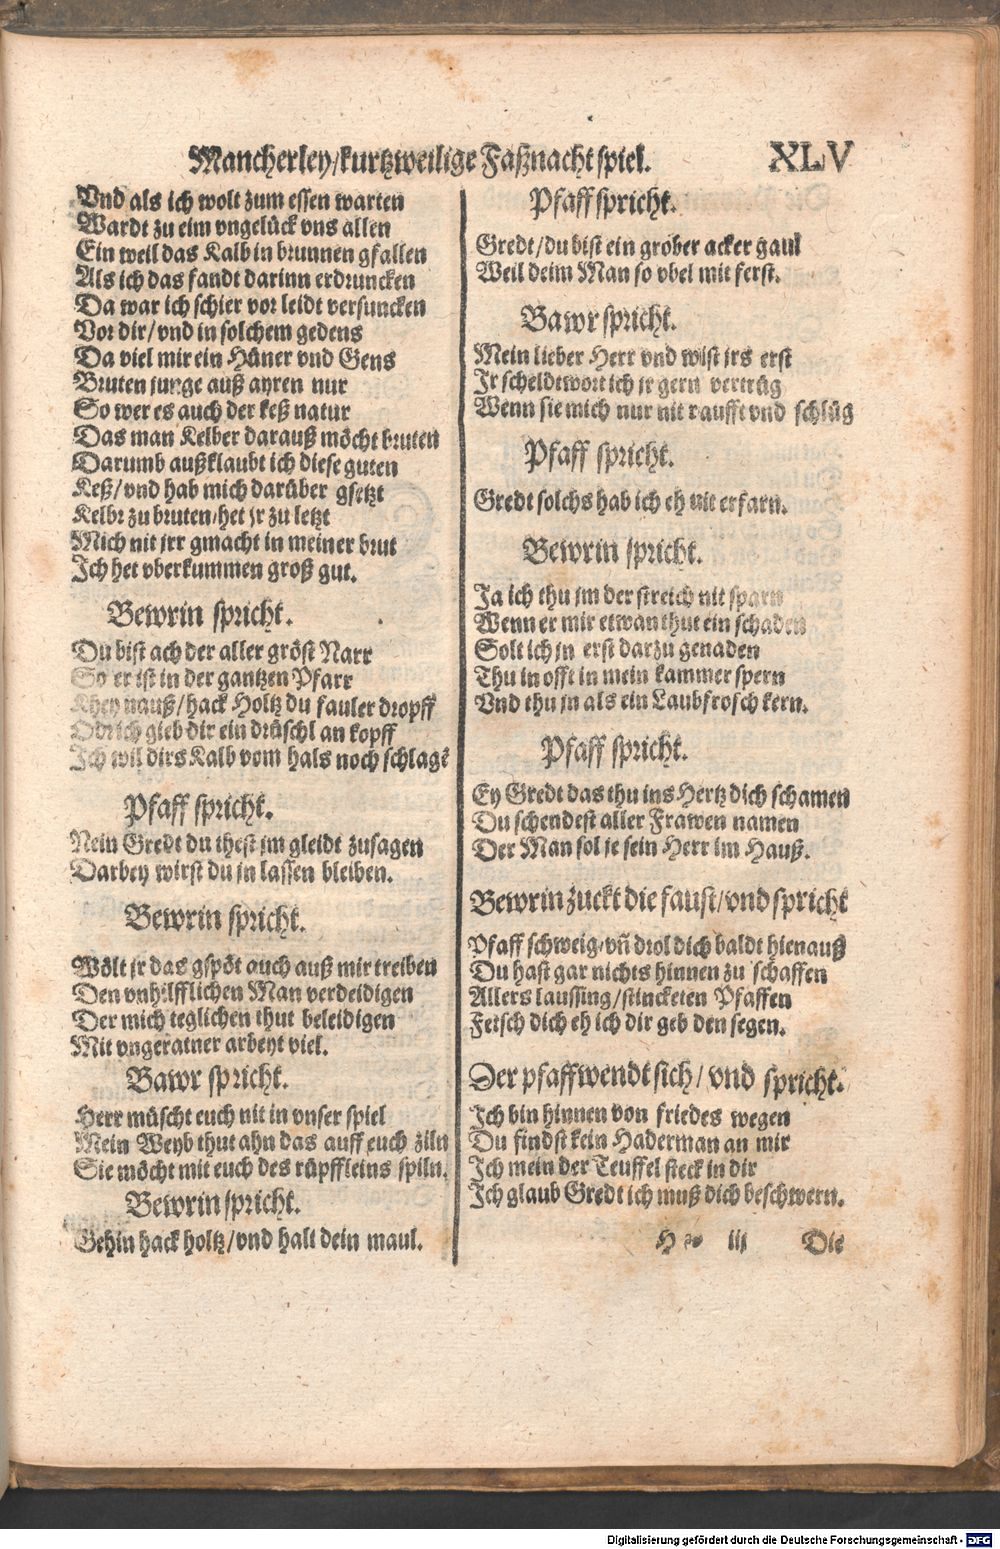 Mancherley/kurtzweilige Faßnacht spiel. XLV
Vnd als ich wolt zum essen warten
Wardt zu eim vngelück vns allen
Ein weil das Kalb in brunnen gfallen
Als ich das fandt darinn erdruncken
Da war ich schier vor leidt versuncken
Vor dir/vnd in solchem gedens
Da viel mir ein Hüner vnd Gens
Bruten junge auß ayren nur
So wer es auch der keß natur
Das man Kelber darauß möcht bruten
Darumb außklaubt ich diese guten
Keß/vnd hab mich darüber gsetzt
Kelbr zu bruten/het jr zu letzt
Mich nit jrr gmacht in meiner brut
Ich het vberkummen groß gut.
Bewrin spricht.
Du bist ach der aller gröst Narr
So er ist in der gantzen Pfarr
Khey nauß/hack Holtz du fauler dropff
Odr ich gieb dir ein drüschl an kopff
Ich wil dirs Kalb vom hals noch schlagē
Pfaff spricht.
Nein Gredt du thest jm gleidt zusagen
Darbey wirst du jn lassen bleiben.
Bewrin spricht.
Wölt jr das gspöt auch auß mir treiben
Den vnhilfflichen Man verdeidigen
Der mich teglichen thut beleidigen
Mit vngeratner arbeyt viel.
Bawr spricht.
Herr müscht euch nit in vnser spiel
Mein Weyb thut ahn das auff euch ziln
Sie möcht mit euch des rüpffleins spiln.
Bewrin spricht.
Gehin hack holtz/vnd halt dein maul.
Pfaff spricht.
Gredt/du bist ein grober acker gaul
Weil deim Man so vbel mit ferst.
Bawr spricht.
Mein lieber Herr vnd wist jrs erst
Jr scheldtwort ich jr gern vertrüg
Wenn sie mich nur nit raufft vnd schlüg
Pfaff spricht.
Gredt solchs hab ich eh nit erfarn.
Bewrin spricht.
Ja ich thu jm der streich nit sparn
Wenn er mir etwan thut ein schaden
Solt ich jn erst darzu genaden
Thu in offt in mein kammer spern
Vnd thu jn als ein Laubfrosch kern.
Pfaff spricht.
Ey Gredt das thu ins Hertz dich schamen
Du schendest aller Frawen namen
Der Man sol je sein Herr im Hauß.
Bewrin zuckt die faust/vnd spricht
Pfaff schweig/vñ drol dich baldt hienauß
Du hast gar nichts hinnen zu schaffen
Allers laussing/stincketen Pfaffen
Fetsch dich eh ich dir geb den segen.
Der pfaff wendt sich/vnd spricht.
Ich bin hinnen von friedes wegen
Du findst kein Haderman an mir
Ich mein der Teuffel steck in dir
Ich glaub Gredt ich muß dich beschwern.
H iij Die
Digitalisierung gefördert durch die Deutsche Forschungsgemeinschaft - DFG